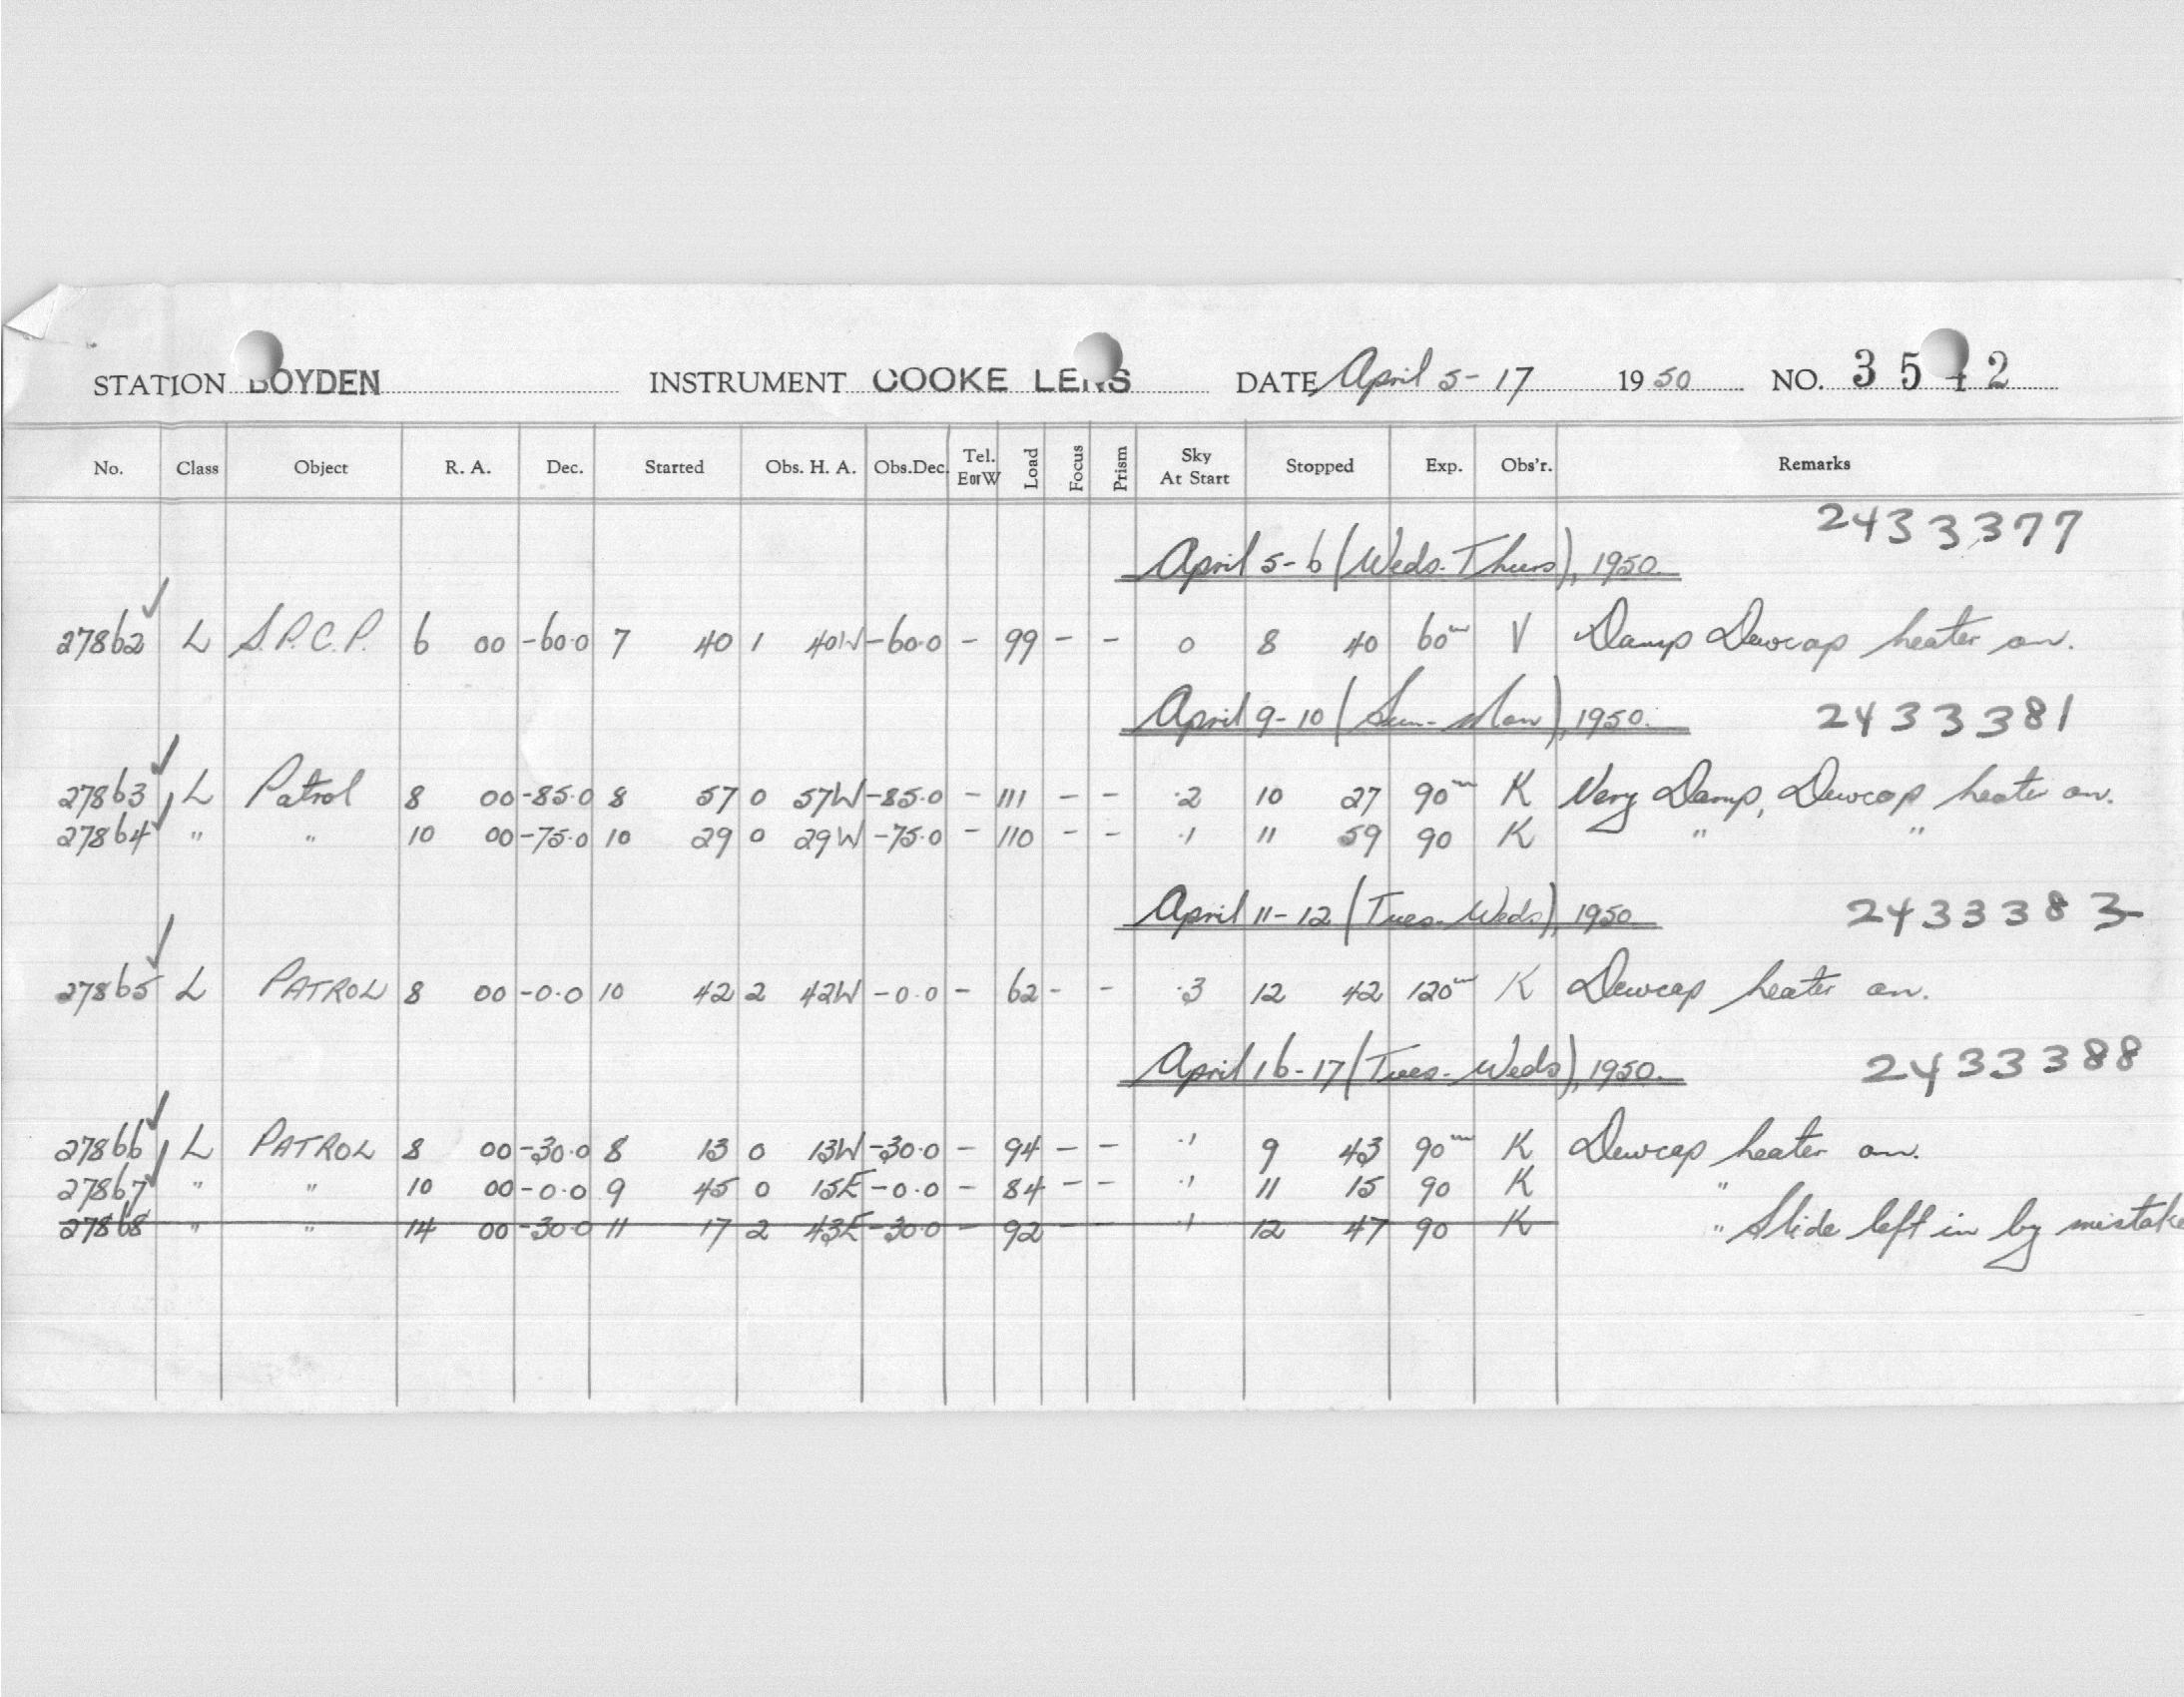 STATION BOYDEN INSTRUMENT COOKE LENS DATE April 5-17 1950 NO. 3542
No. Class Object R. A. Dec. Started Obs. H. A. Obs.Dec. Tel. E or W Load Focus Prism Sky At Start Stopped Exp. Obs'r. Remarks
2433377
April 5-6 (Weds-Thurs), 1950.
27862 L S.P.C.P. 6 00 -60.0 7 40 1 40W -60.0 - 99 - - 0 8 40 60m V Damp Dewcap heater on.
April 9-10 (Sun-Mon), 1950. 2433381
27863 L Patrol 8 00 -85.0 8 57 0 57W -85.0 - 111 - - .2 10 27 90m K Very Damp, Dewcap heater on.
27864 " " 10 00 -75.0 10 29 0 29W -75.0 - 110 - - .1 11 59 90 K " "
April 11-12 (Tues-Weds), 1950 2433383
27865 L PATROL 8 00 -0.0 10 42 2 42W -0.0 - 62 - - .3 12 42 120m K Dewcap heater on.
April 16-17 (Tues-Weds), 1950. 2433388
27866 L PATROL 8 00 -30.0 8 13 0 13W -30.0 - 94 - - .1 9 43 90m K Dewcap heater on.
27867 " " 10 00 -0.0 9 45 0 15E -0.0 - 84 - - .1 11 15 90 K "
27868 " " 14 00 -30.0 11 17 2 43E -30.0 - 92 - - .1 12 47 90 K " Slide left in by mistake